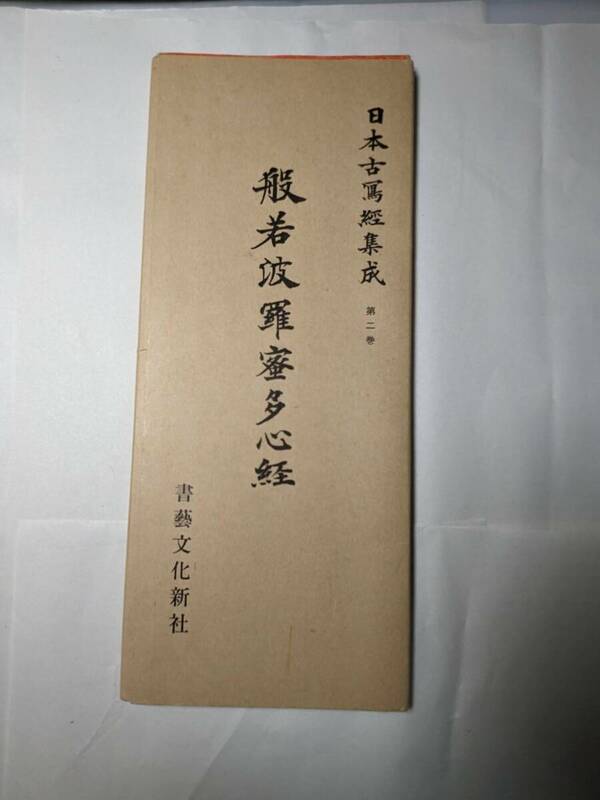 日本古寫經集成 第二巻
般若波羅蜜多心経
書藝文化新社